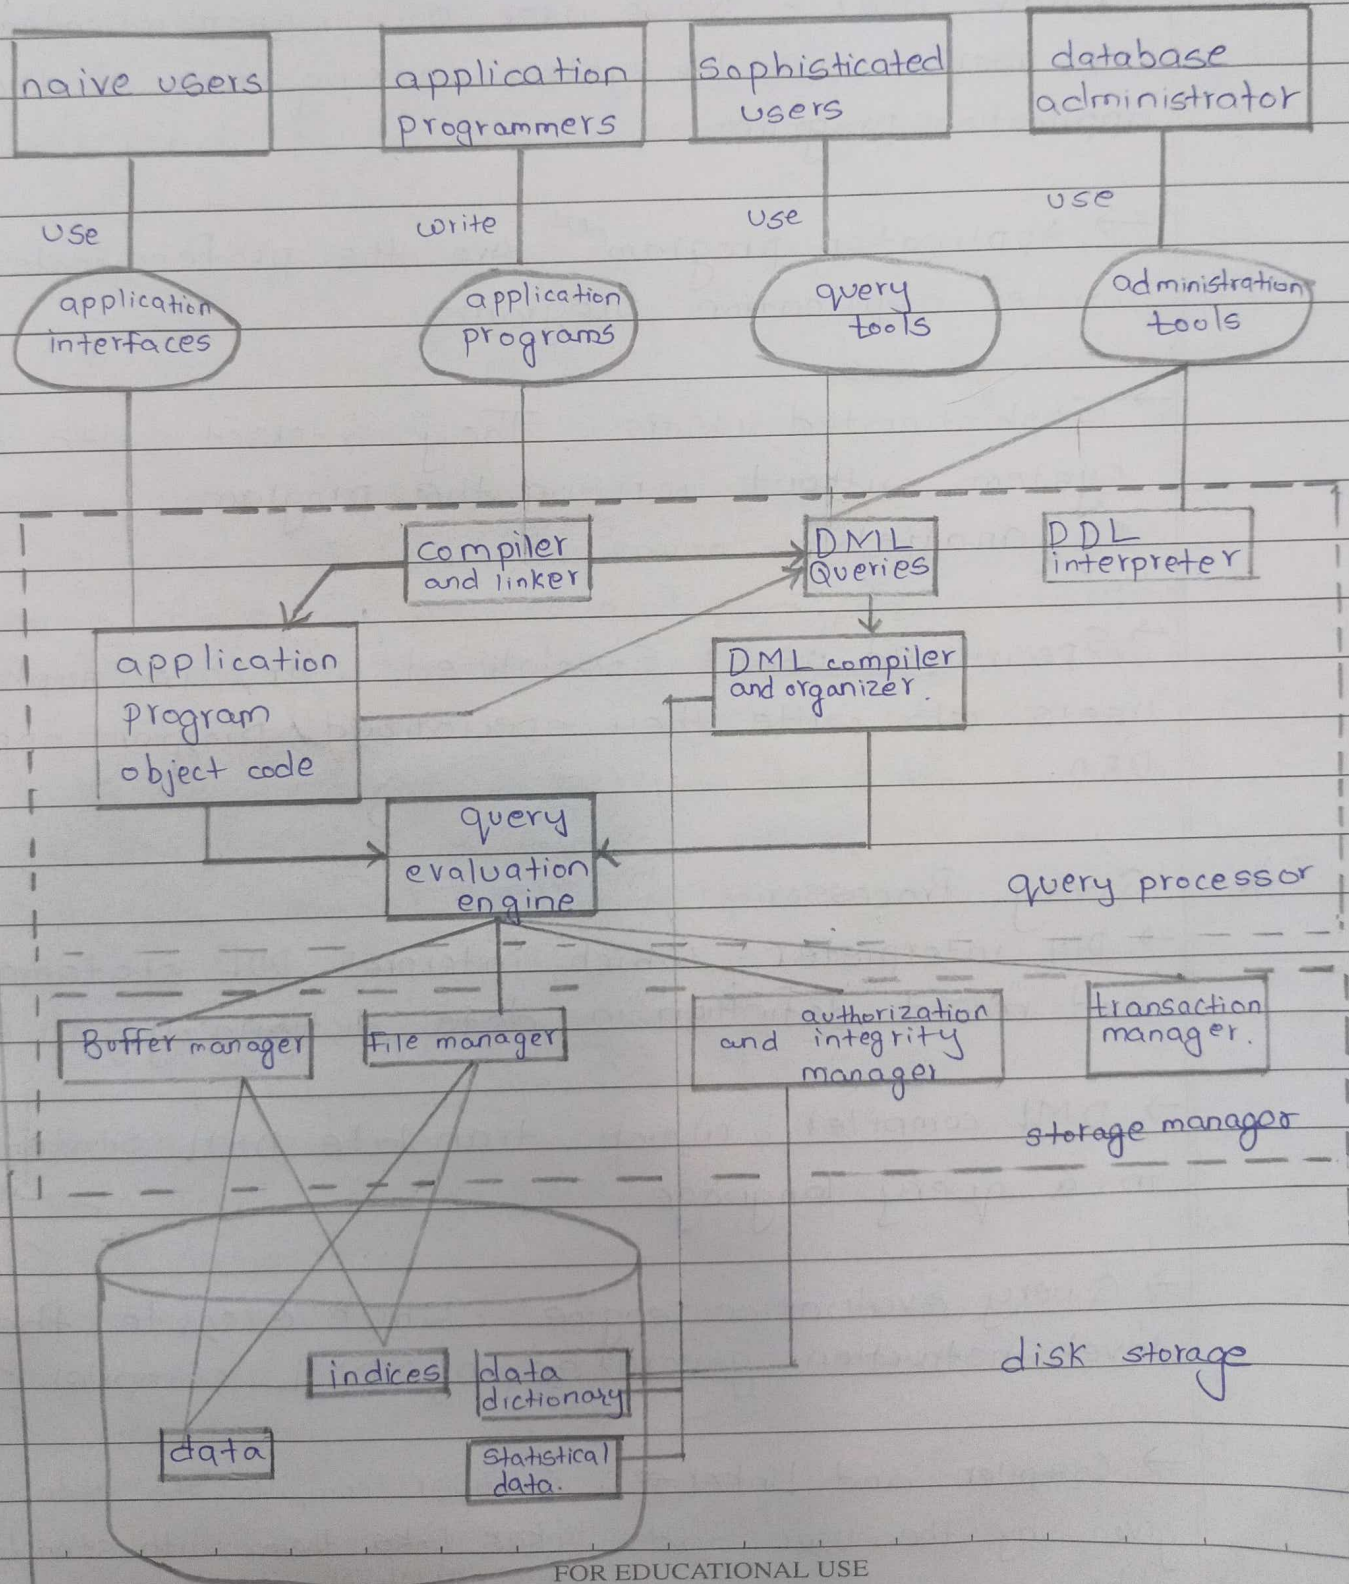 naive users
application
programmers
sophisticated
users
database
administrator
use
write
use
use
application
interfaces
application
programs
query
tools
administration
tools
compiler
and linker
DML
Queries
DDL
interpreter
application
program
object code
DML compiler
and organizer.
query
evaluation
engine
query processor
Buffer manager
File manager
authorization
and integrity
manager
transaction
manager.
storage manager
indices
data
dictionary
disk storage
data
statistical
data.
FOR EDUCATIONAL USE